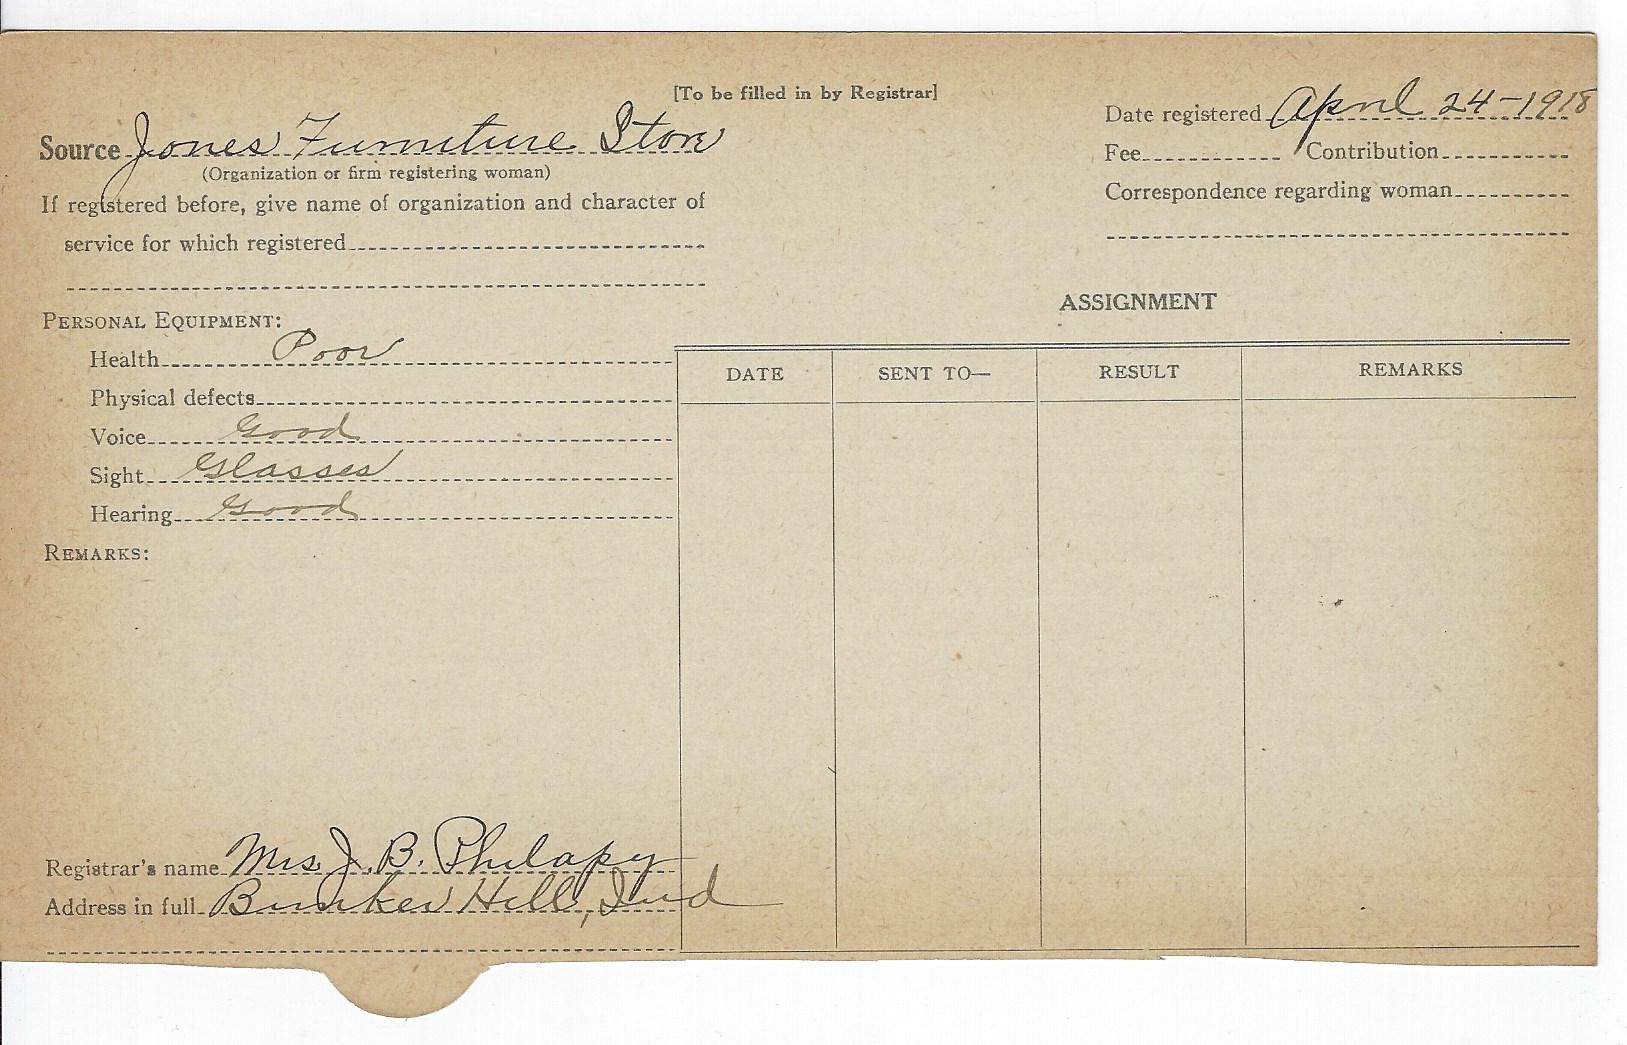 [To be filled in by Registrar]
Source Jones Furniture Store
(Organization or firm registering woman)
If registered before, give name of organization and character of
service for which registered
Date registered April 24-1918
Fee Contribution
Correspondence regarding woman
PERSONAL EQUIPMENT:
Health Poor
Physical defects
Voice Good
Sight Glasses
Hearing Good
REMARKS:
Registrar's name Mrs J. B. Philapy
Address in full Bunker Hill, Ind
ASSIGNMENT
DATE SENT TO— RESULT REMARKS